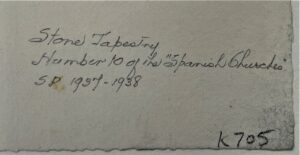 Stone Tapestry
Number 10 of the "Spanish Churches"
S.P. 1937-1938
K705